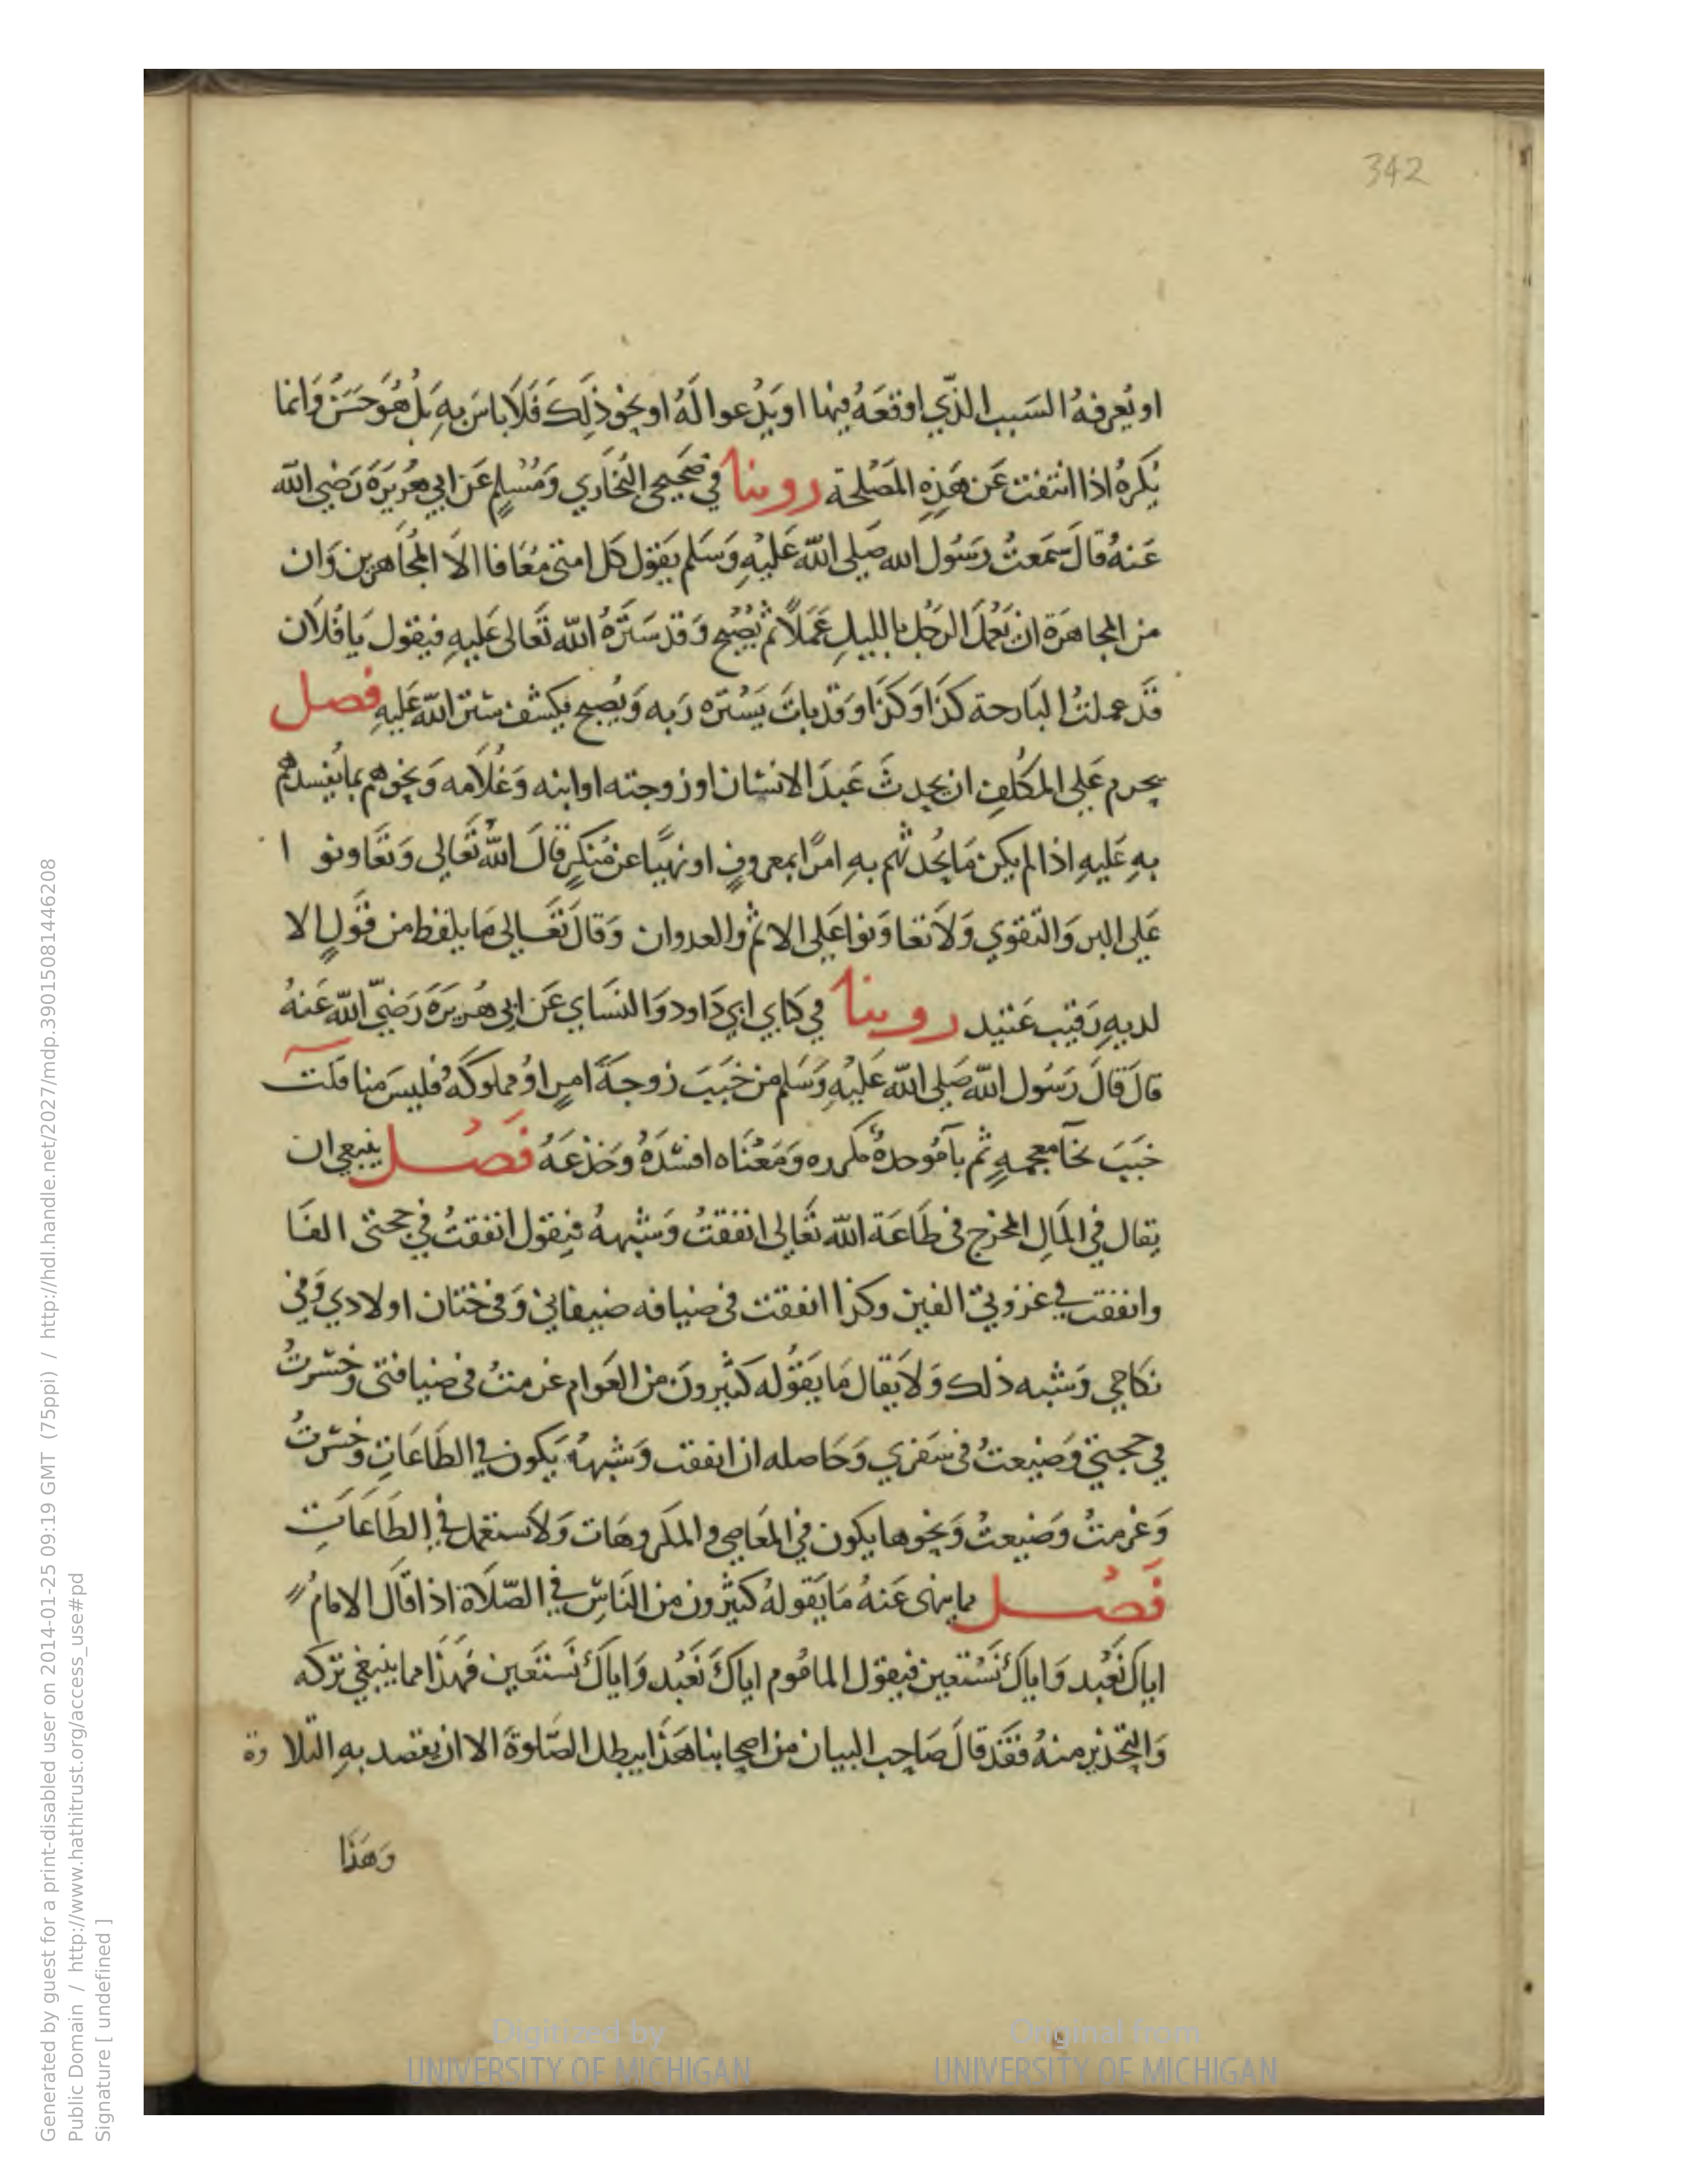 342
او يُعرفهُ السَبب الذّي اوقعَهُ فيها او يَدْعوا لَهُ او نحو ذلِك فَلَا باسَ بهِ بَلْ هُوَ حَسَنٌ وَانما
يُكرهُ اذا انتفت عَن هَذِهِ المَصْلحة روينا في صَحيحي البُخَاري وَمُسْلمٍ عَن ابي هُرَيرَةَ رَضي الله
عَنهُ قالَ سَمَعتُ رَسُول الله صَلى الله عَليْهِ وَسَلم يَقول كل امتى مُعَافا الاَ المُجَاهرين وَان
من المجاهرَة ان يَعْمَلَ الرجُل بالليلِ عَمَلاً ثم يُصْبح وَقد سَتَرَهُ الله تَعَالى عَليهِ فيقول يَا فُلَان
قَد عملتُ البَارحة كذَا وَكذَا وَقد باتَ يَسْتره رَبه وَيُصبح يكشف ستر الله عَليهِ فصل
يحرم عَلى المكُلف ان يحدثَ عَبدَ الانسَان او زوجته او ابنه وَغُلَامه وَنحوهم بما يُفسدهُم
بهِ عَليهِ اذا لم يكن مَا يُحدثهم بهِ امرًا بمعروفٍ او نهيًا عن مُنكرٍ قالَ اللهُ تَعَالى وَتَعَاونو ا
عَلى البر وَالتقوي وَلاَ تعاوَنوا عَلى الاثم والعدوان وَقالَ تعَـالى مَا يلفظ من قَولٍ الا
لديهِ رَقيب عَتيد روينا في كتابي ابي دَاود وَالنسَاي عَن ابي هُريرَةَ رَضيَ الله عَنهُ
قالَ قالَ رَسُول الله صَلى الله عَليْهِ وَسَلم من خَبَبَ زوجـةَ امرٍ اوْ مملوكهُ فليسَ منا قلت
خَبَبَ بخآ معجمهٍ ثم بآ مُوحدةٌ مكرره وَمَعْنَاه افسَدَهُ وَخدْعَهُ فَصْـل ينبغي ان
يقال في المَالِ المخرج فى طَاعَة الله تَعَالى انفقتُ وَشبههُ فيقول انفقتُ في حجتى الفـا
وانفقت في غزوتيّ الفين وكذا انفقت فى ضيافه ضيفاني وَفى ختان اولادي وَفي
نكاحي وَشبه ذلك وَلاَ يقال مَا يَقوُله كثيرونَ من العَوام غرمتُ فى ضيافتى وخسرتُ
في حجتي وَضيعتُ فى سَفري وَحَاصله ان انفقت وَشبهُهُ يَكون في الطَاعَات وخسرتُ
وَغرمتُ وضيعتُ وَنحوها يكون في المعَاصي والمكروهَات وَلاَ تستعمل في الطَاعَاتِ
فَصْـل مما ينهى عَنهُ مَا يَقولهُ كثيرون من النَاسِ في الصّلَاة اذا قالَ الامامُ
اياكَ نَعْبد وَاياكَ نَسْتعين فيقول الماموُم اياكَ نَعْبُد وَاياكَ نَستَعين فَهذَا مما ينبغي تركه
وَالتحذير منهُ فقَد قالَ صَاحِب البيان من اصحابنا هَذَا يبطل الصَّلوة الا ان يقصد بهِ التلا وة
وَهَذَا
Generated by guest for a print-disabled user on 2014-01-25 09:19 GMT (75ppi) / http://hdl.handle.net/2027/mdp.39015081446208
Public Domain / http://www.hathitrust.org/access_use#pd
Signature [ undefined ]
Digitized by
UNIVERSITY OF MICHIGAN
Original from
UNIVERSITY OF MICHIGAN